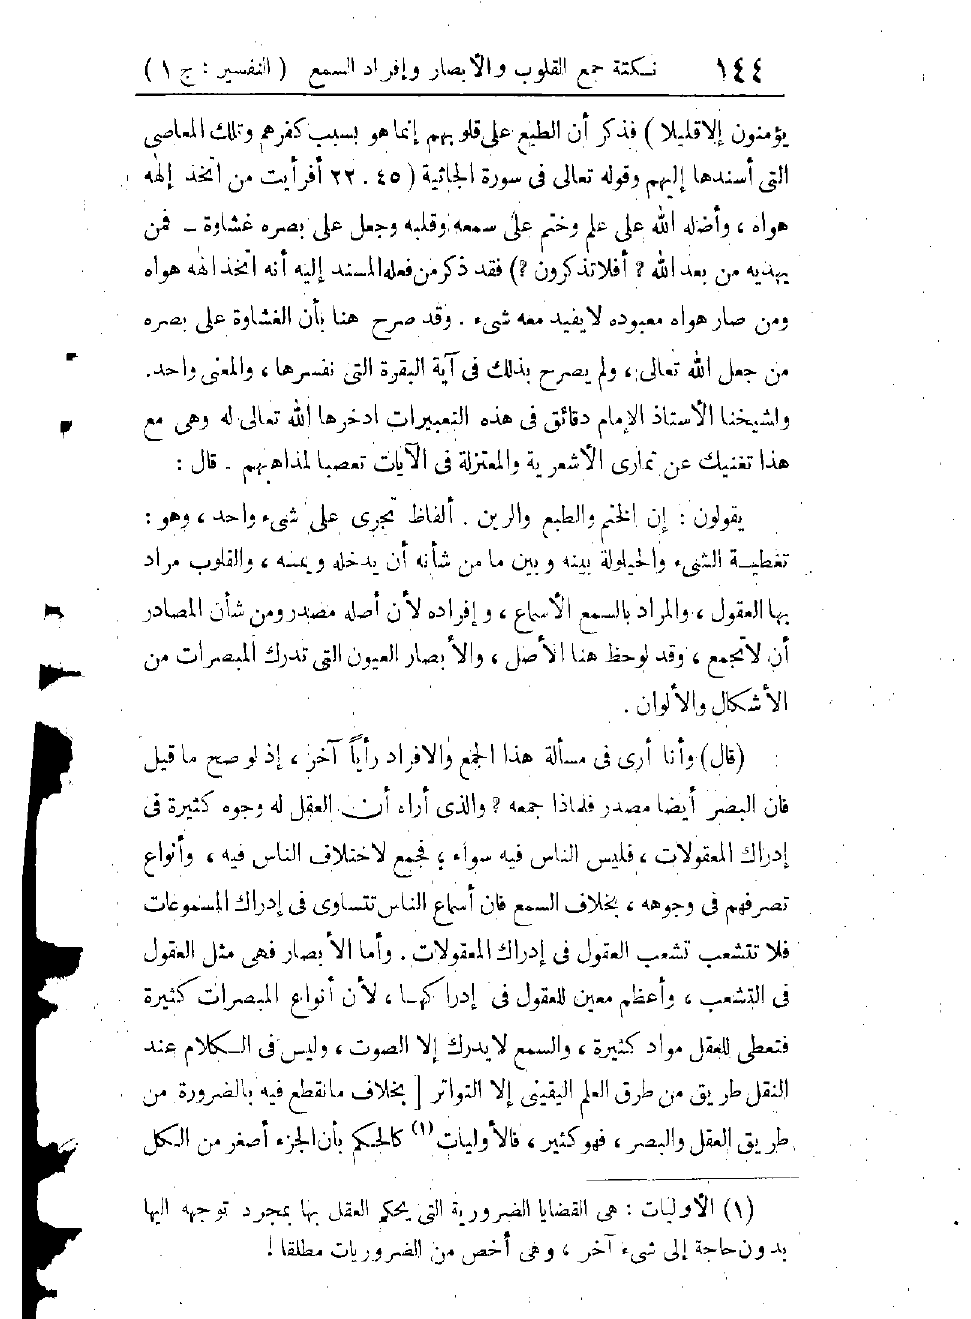 ١٤٤ نكتة جمع القلوب والأبصار وإفراد السمع ( التفسير : ج ١ )
يؤمنون إلا قليلا ) فذكر أن الطبع على قلوبهم إنما هو بسبب كفرهم وتلك المعاصى
التى أسندها إليهم وقوله تعالى فى سورة الجاثية ( ٤٥ . ٢٢ أفرأيت من اتخذ إلهه
هواه ، وأضله الله على علم وختم على سمعه وقلبه وجعل على بصره غشاوة ـ فمن
يهديه من بعد الله ? أفلا تذكرون ?) فقد ذكر من فعله المسند إليه أنه اتخذ الهه هواه
ومن صار هواه معبوده لا يفيد معه شىء . وقد صرح هنا بأن الغشاوة على بصره
من جعل الله تعالى ، ولم يصرح بذلك فى آية البقرة التى نفسرها ، والمعنى واحد .
ولشيخنا الأستاذ الإمام دقائق فى هذه التعبيرات ادخرها الله تعالى له وهى مع
هذا تغنيك عن تمارى الأشعرية والمعتزلة فى الآيات تعصبا لمذاهبهم . قال :
يقولون : إن الختم والطبع والرين . ألفاظ تجرى على شىء واحد ، وهو :
تغطيـة الشىء والحيلولة بينه وبين ما من شأنه أن يدخله ويمسه ، والقلوب مراد
بها العقول ، والمراد بالسمع الأسماع ، وإفراده لأن أصله مصدر ومن شأن المصادر
أن لا تجمع ، وقد لوحظ هنا الأصل ، والأبصار العيون التى تدرك المبصرات من
الأشكال والألوان .
(قال) وأنا أرى فى مسألة هذا الجمع والافراد رأياً آخر ، إذ لو صح ما قيل
فان البصر أيضا مصدر فلماذا جمعه ? والذى أراه أن العقل له وجوه كثيرة فى
إدراك المعقولات ، فليس الناس فيه سواء ، فجمع لاختلاف الناس فيه ، وأنواع
تصرفهم فى وجوهه ، بخلاف السمع فان أسماع الناس تتساوى فى إدراك المسموعات
فلا تتشعب تشعب العقول فى إدراك المعقولات . وأما الأبصار فهى مثل العقول
فى التشعب ، وأعظم معين للعقول فى إدراكهـا ، لأن أنواع المبصرات كثيرة
فتعطى للعقل مواد كثيرة ، والسمع لا يدرك إلا الصوت ، وليس فى الـكلام عند
النقل طريق من طرق العلم اليقينى إلا التواتر [ بخلاف ما نقطع فيه بالضرورة من
طريق العقل والبصر ، فهو كثير ، فالأوليات (١) كالحكم بأن الجزء أصغر من الـكل
(١) الأوليات : هى القضايا الضرورية التى يحكم العقل بها بمجرد توجهه اليها
بدون حاجة إلى شىء آخر ، وهى أخص من الضروريات مطلقا !